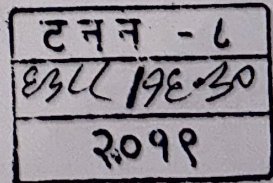 ट न न - ८
६३८८ / १६-३०
२०१९